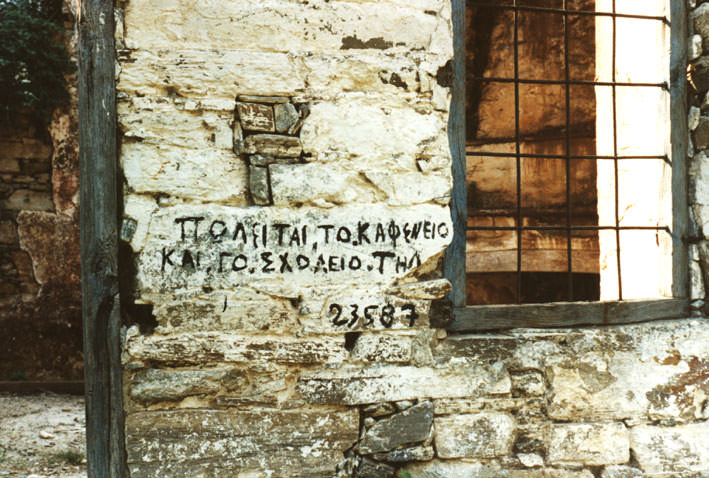 ΠΟΛΕΙΤΑΙ.ΤΟ.ΚΑΦΕΝΕΙΟ
ΚΑΙ.ΤΟ.ΣΧΟΛΕΙΟ.ΤΗΛ
23587